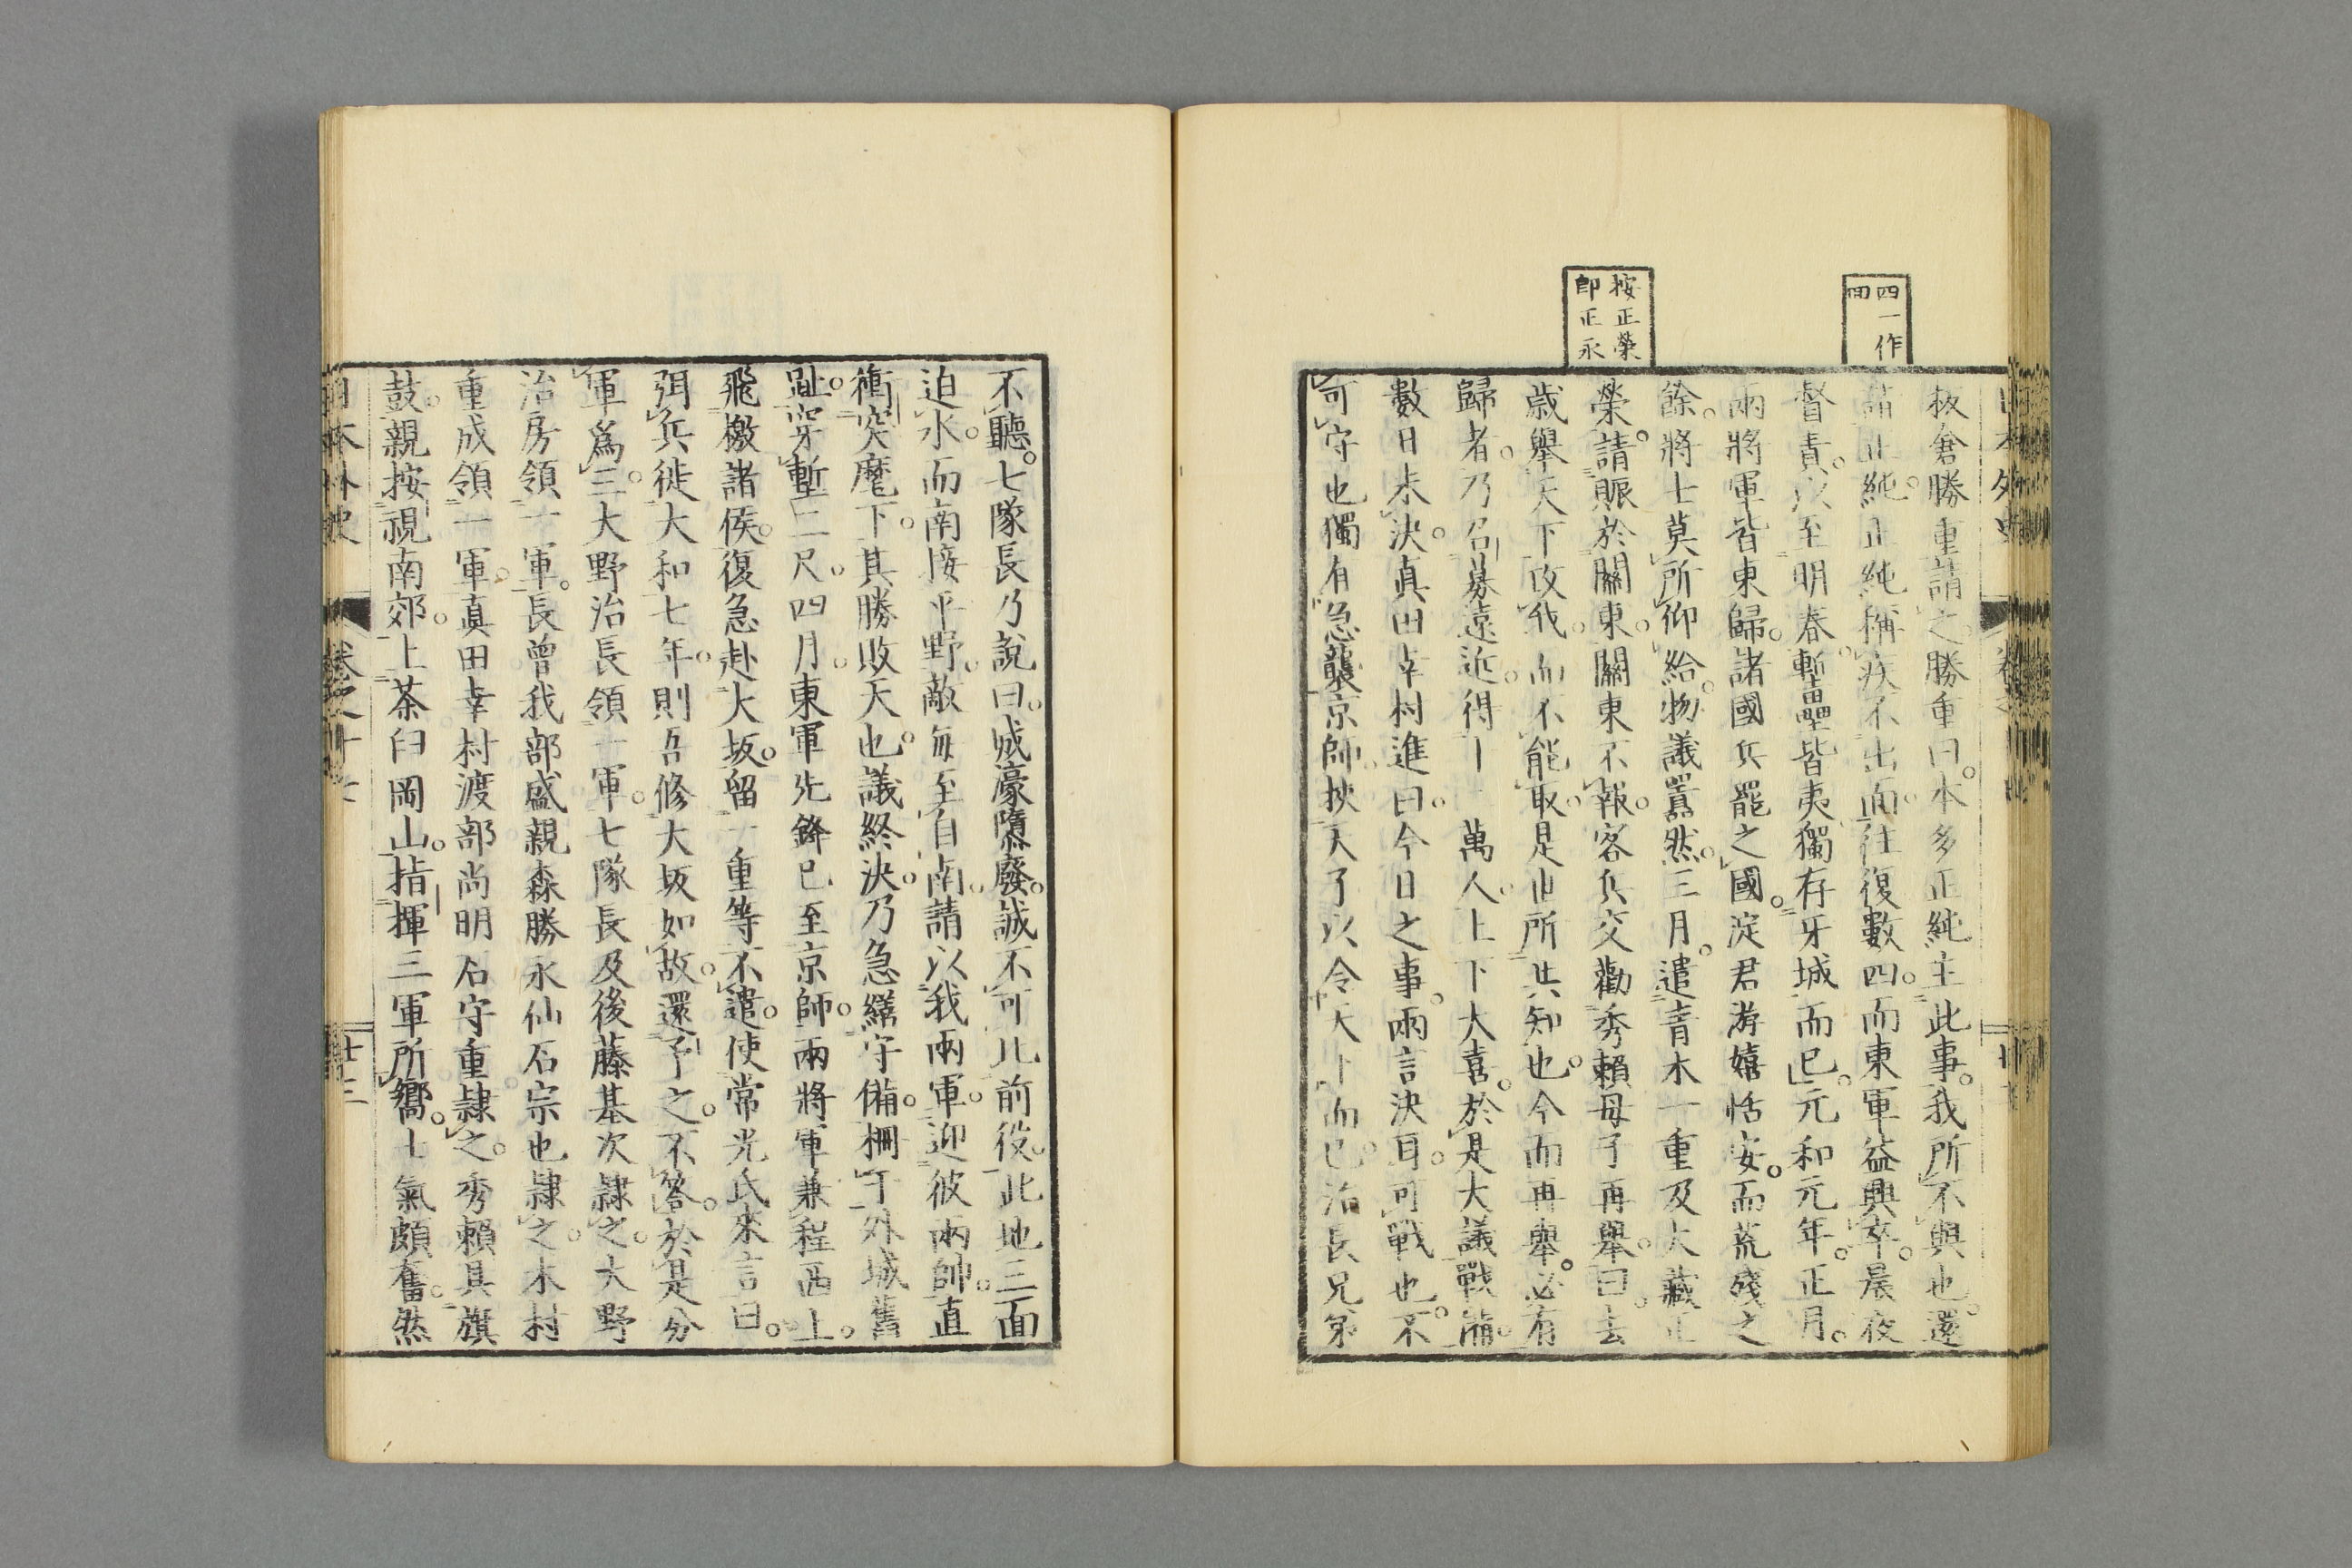 四一作
回
按正榮
即正永
板倉勝重請之勝重曰。本多正純主此事。我所不與也。還
請正純。正純稱疾不出面。往復數四。而東軍益興卒。晨夜
督責。以至明春。塹壘皆夷。獨存牙城而已。元和元年。正月。
兩將軍皆東歸。諸國兵罷之國。淀君游嬉恬安。而荒殘之
餘。將士莫所仰給。物議囂然。三月。遣青木一重及大藏正
榮。請賑於關東。關東不報。客兵交勸秀賴母子再舉。曰。去
歲舉天下攻我。而不能取。是世所共知也。今而再舉。必有
歸者。乃召募遠近。得十一萬人。上下大喜。於是大議戰備。
數日未決。真田幸村進曰。今日之事。兩言決耳。可戰也。不
可守也。獨有急襲京師。挾天子以令天下而已。治長兄弟
不聽。七隊長乃說曰。城濠隳廢。誠不可比前役。此地三面
迫水。而南接平野。敵每至自南。請以我兩軍。迎彼兩帥。直
衝突麾下。其勝敗天也。議終決。乃急繕守備。柵于外城舊
趾。穿塹二尺。四月。東軍先鋒已至京師。兩將軍兼程西上。
飛檄諸侯。復急赴大坂。留一重等不遣。使常光氏來言曰。
弭兵徙大和七年。則吾修大坂如故。還予之。不答。於是分
軍爲三。大野治長領一軍。七隊長及後藤基次隸之。大野
治房領一軍。長曾我部盛親森勝永仙石宗也隸之。木村
重成領一軍。真田幸村渡部尚明石守重隸之。秀賴具旗
鼓。親按視南郊。上茶臼岡山。指揮三軍所嚮。士氣頗奮。然
日本外史 卷之二十七 十三